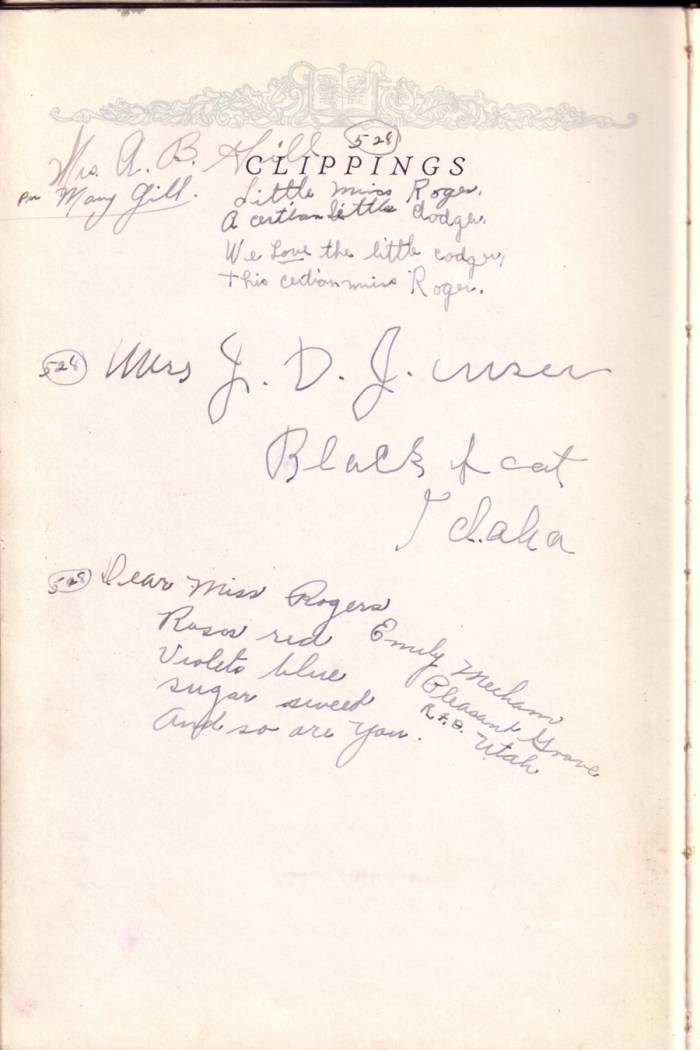 528
Mrs. A. B. Gill
CLIPPINGS
Per Mary Gill.
Little miss Roger,
A certian little dodger,
We Love the little codger,
this certian miss Roger.
528
Mrs J. D. J.
Black f cat
Idaho
528
Dear Miss Rogers
Roses red
Violets blue
sugar sweet
And so are you.
Emily Mecham
Pleasant Grove
R.F.D. Utah